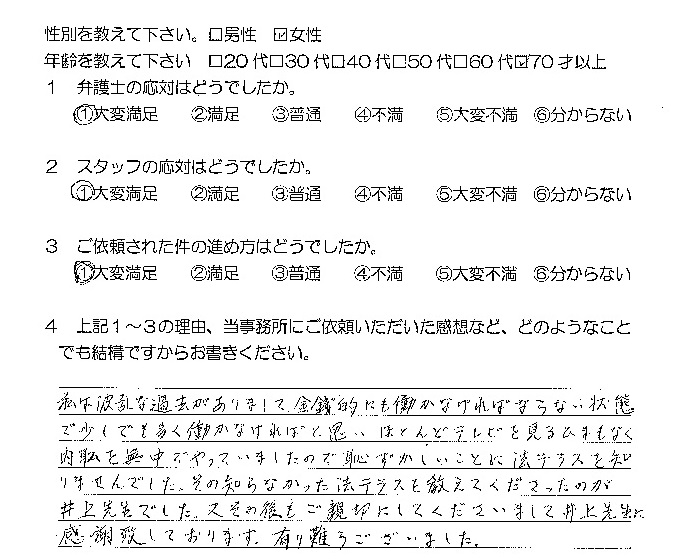 性別を教えて下さい。□男性　☑女性
年齢を教えて下さい　□20代□30代□40代□50代□60代☑70才以上
１　弁護士の応対はどうでしたか。
①大変満足　②満足　③普通　④不満　⑤大変不満　⑥分からない
２　スタッフの応対はどうでしたか。
①大変満足　②満足　③普通　④不満　⑤大変不満　⑥分からない
３　ご依頼された件の進め方はどうでしたか。
①大変満足　②満足　③普通　④不満　⑤大変不満　⑥分からない
４　上記１～３の理由、当事務所にご依頼いただいた感想など、どのようなこと
でも結構ですからお書きください。
私は波乱な過去がありまして金銭的にも働かなければならない状態
で少しでも多く働かなければと思い ほとんどテレビを見るひまもなく
内職を夢中でやっていましたので恥ずかしいことに法テラスを知
りませんでした。その知らなかった法テラスを教えてくださったのが
井上先生でした。又その後もご親切にしてくださいまして井上先生に
感謝致しております。有り難うございました。